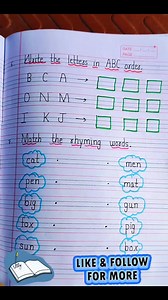 Write the letters in ABC order.
B C A →
O N M →
I K J →
Match the rhyming words.
cat · · men
pen · · mat
big · · gun
fox · · pig
sun · · box
LIKE & FOLLOW
FOR MORE